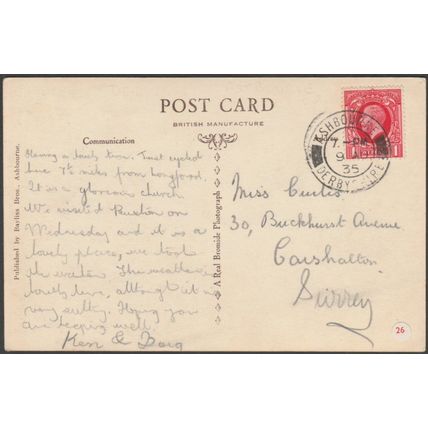 POST CARD
BRITISH MANUFACTURE
Communication
Having a lovely time. Just cycled
five 1/2 miles from Longford.
It is a glorious church
We visited Buxton on
Wednesday and it is a
lovely place, we took
the waters. The weather is
lovely here, although it is
very sultry. Hoping you
are keeping well.
Ken & Doug
Published by Bayliss Bros., Ashbourne.
A Real Bromide Photograph
ASHBOURNE
7. PM
9 AU
35
DERBYSHIRE
1
Miss Curtis
30, Buckhurst Avenue
Carshalton
Surrey
26